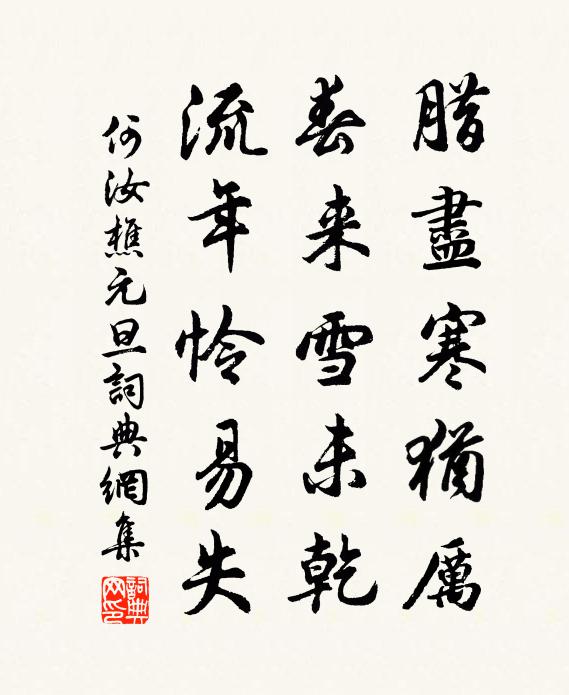 腊盡寒猶厲
春来雪未乾
流年怜易失
何汝樵元旦詞典網集
詞典网印